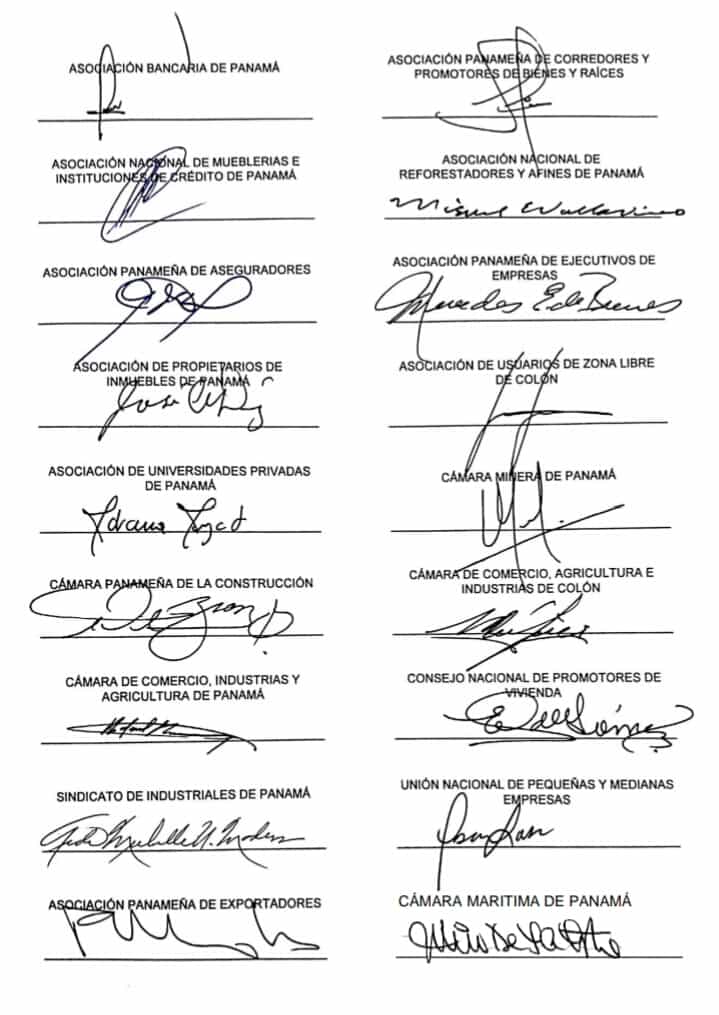 ASOCIACIÓN BANCARIA DE PANAMÁ
ASOCIACIÓN PANAMEÑA DE CORREDORES Y
PROMOTORES DE BIENES Y RAÍCES
ASOCIACIÓN NACIONAL DE MUEBLERIAS E
INSTITUCIONES DE CRÉDITO DE PANAMÁ
ASOCIACIÓN NACIONAL DE
REFORESTADORES Y AFINES DE PANAMÁ
Miguel
ASOCIACIÓN PANAMEÑA DE ASEGURADORES
ASOCIACIÓN PANAMEÑA DE EJECUTIVOS DE
EMPRESAS
Mercedes E de
ASOCIACIÓN DE PROPIETARIOS DE
INMUEBLES DE PANAMÁ
José
ASOCIACIÓN DE USUARIOS DE ZONA LIBRE
DE COLÓN
ASOCIACIÓN DE UNIVERSIDADES PRIVADAS
DE PANAMÁ
CÁMARA MINERA DE PANAMÁ
CÁMARA PANAMEÑA DE LA CONSTRUCCIÓN
CÁMARA DE COMERCIO, AGRICULTURA E
INDUSTRIAS DE COLÓN
CÁMARA DE COMERCIO, INDUSTRIAS Y
AGRICULTURA DE PANAMÁ
CONSEJO NACIONAL DE PROMOTORES DE
VIVIENDA
Gómez
SINDICATO DE INDUSTRIALES DE PANAMÁ
UNIÓN NACIONAL DE PEQUEÑAS Y MEDIANAS
EMPRESAS
ASOCIACIÓN PANAMEÑA DE EXPORTADORES
CÁMARA MARITIMA DE PANAMÁ